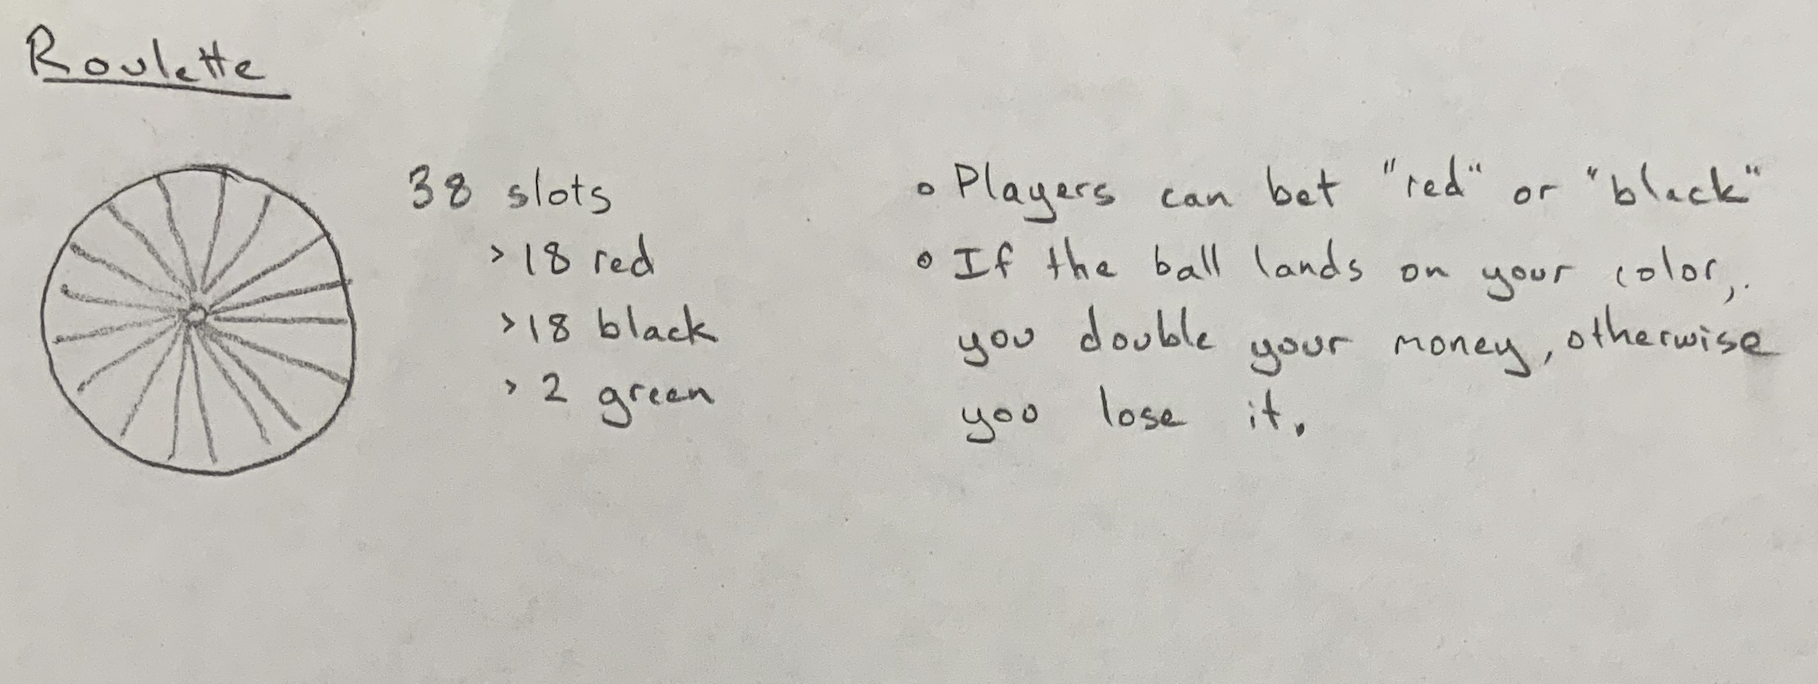 Roulette
38 slots
> 18 red
> 18 black
> 2 green
◦ Players can bet "red" or "black"
◦ If the ball lands on your color,
you double your money, otherwise
you lose it.